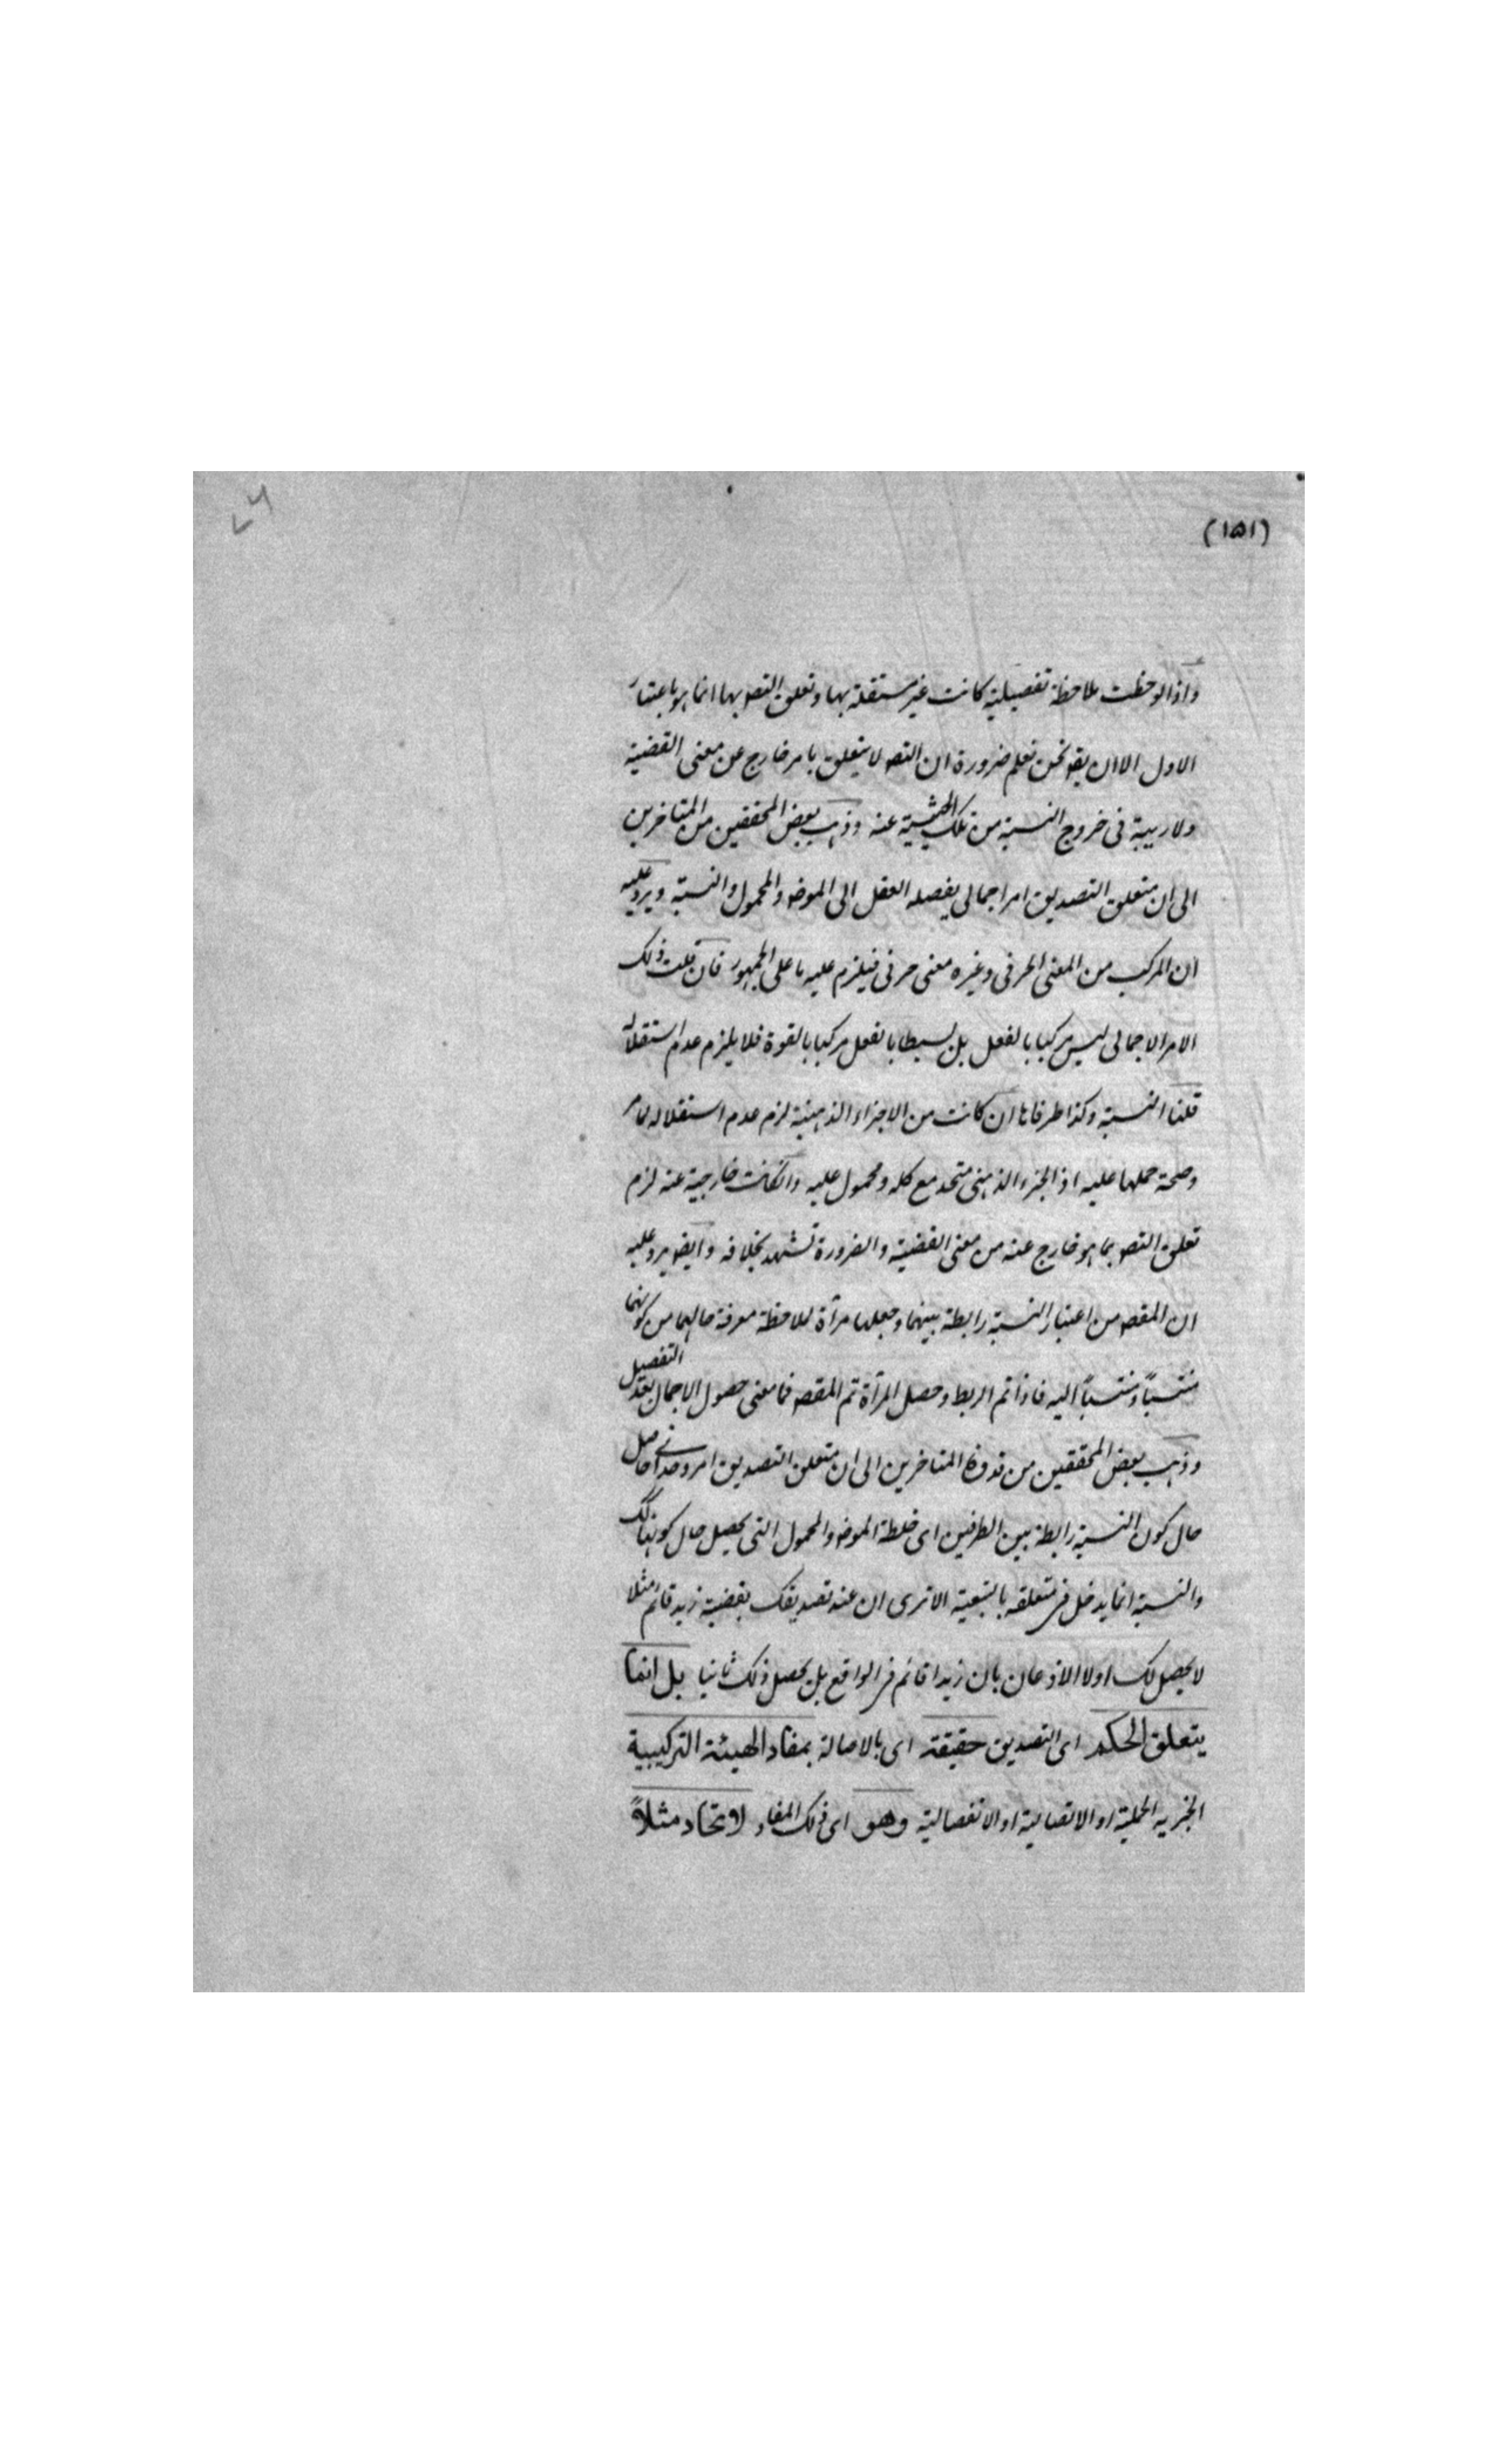 (١۵١)
٧٦
واذا لوحظت ملاحظة تفصيلية كانت غير مستقلة بها وتعلق التصو بها انما هو باعتبار
الاول الا ان يقو نحن نعلم ضرورة ان التصو لا يتعلق بامر خارج عن معنى القضية
ولا ريبة فى خروج النسبة من تلك الحيثية عنه وذهب بعض المحققين من المتاخرين
الى ان متعلق التصديق امر اجمالى يفصله العقل الى الموضو والمحمول والنسبة ويرد عليه
ان المركب من المعنى الحرفى وغيره معنى حرفى فيلزم عليه ما على الجمهور فان قلت ذلك
الامر الاجمالى ليس مركبا بالفعل بل بسيطا بالفعل مركبا بالقوة فلا يلزم عدم استقلاله
قلنا النسبة وكذا طرفاها ان كانت من الاجزاء الذهنية لزم عدم استقلاله لما مر
وصحة حملها عليه اذ الجزء الذهنى متحد مع كله ومحمول عليه وانكانت خارجية عنه لزم
تعلق التصو بما هو خارج عنه من معنى القضية والضرورة تشهد بخلافه وايضو يرد عليه
ان المقصو من اعتبار النسبة رابطة بينهما وجعلها مرآة لملاحظة معرفة حالهما من كونهما
منتسباً ومنتسباً اليه فاذا تم الربط وحصل المرآة تم المقصو فما معنى حصول الاجمال بعد التفصيل
وذهب بعض المحققين من المتاخرين الى ان متعلق التصديق امر وحدانى حاصل
حال كون النسبة رابطة بين الطرفين اى خلطة الموضو والمحمول التى يحصل حال كونها كذلك
والنسبة انما يدخل فى متعلقه بالتبعية الا ترى ان عند تصديقك بقضية زيد قائم مثلا
لا يحصل لك اولا الاذعان بان زيدا قائم فى الواقع بل يحصل ذلك ثانيا بل انما
يتعلق الحكم اى التصديق حقيقة اى بالاصالة بمفاد الهيئة التركيبية
الخبريه الحملية او الاتصالية او الانفصالية وهو اى ذلك المفاد لاتحاد مثلاً